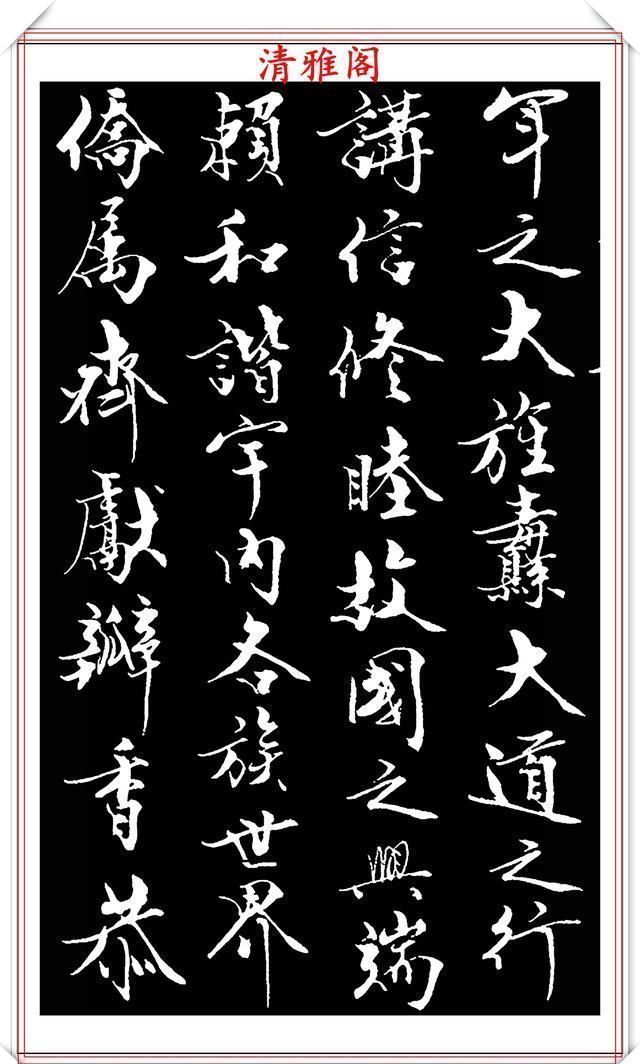 清雅阁
年之大旌纛大道之行
講信修睦故國之興端
賴和諧宇內各族世界
僑属齊獻瓣香恭